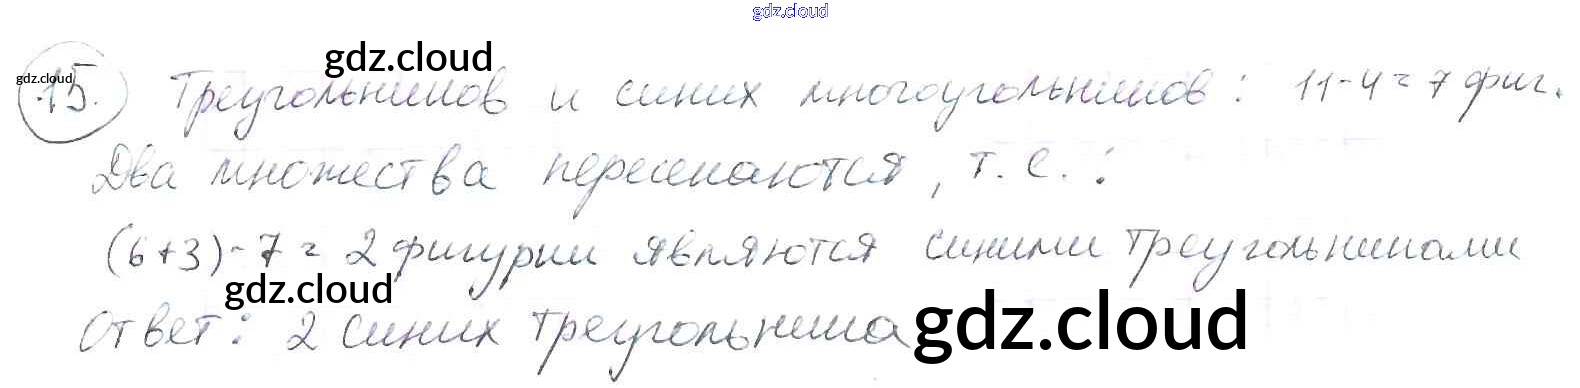 gdz.cloud
gdz.cloud
gdz.cloud
15. Треугольников и синих многоугольников: 11-4=7 фиг.
Два множества пересекаются, т.е.:
(6+3)-7=2 фигуры являются синими треугольниками
gdz.cloud
Ответ: 2 синих треугольника
gdz.cloud